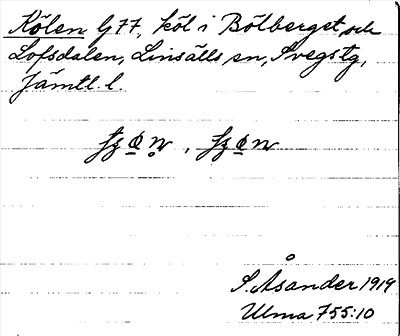 Kölen G77, köl i Bölberget och
Lofsdalen, Linsälls sn, Svegs tg,
Jämtl. l.
S. Åsander 1919
Ulma 755:10